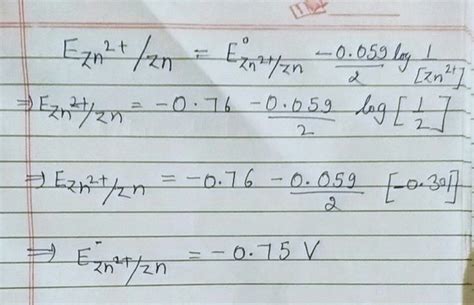 E Zn²⁺/Zn = E° Zn²⁺/Zn - 0.059/2 log 1/[Zn²⁺]
⇒ E Zn²⁺/Zn = -0.76 - 0.059/2 log [1/2]
⇒ E Zn²⁺/Zn = -0.76 - 0.059/2 [-0.301]
⇒ E⁻ Zn²⁺/Zn = -0.75 V